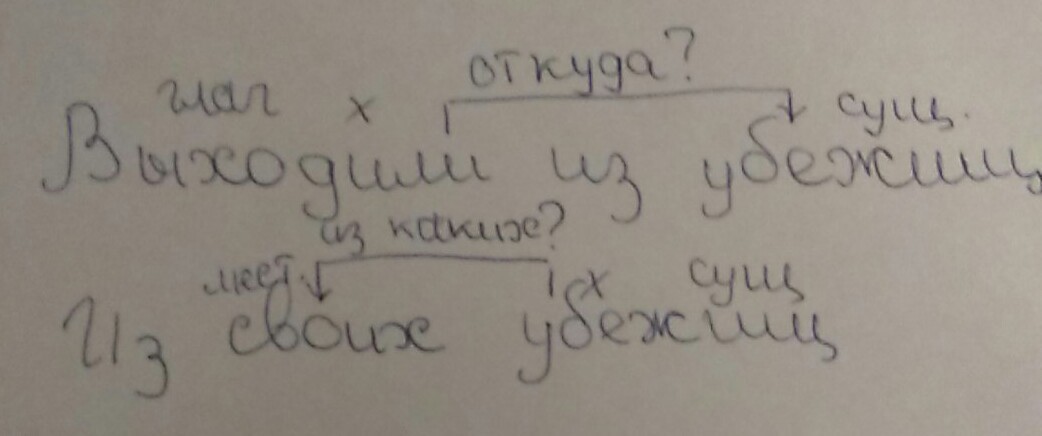 глаг х откуда? сущ.
Выходили из убежищ
из каких?
мест. х сущ
Из своих убежищ